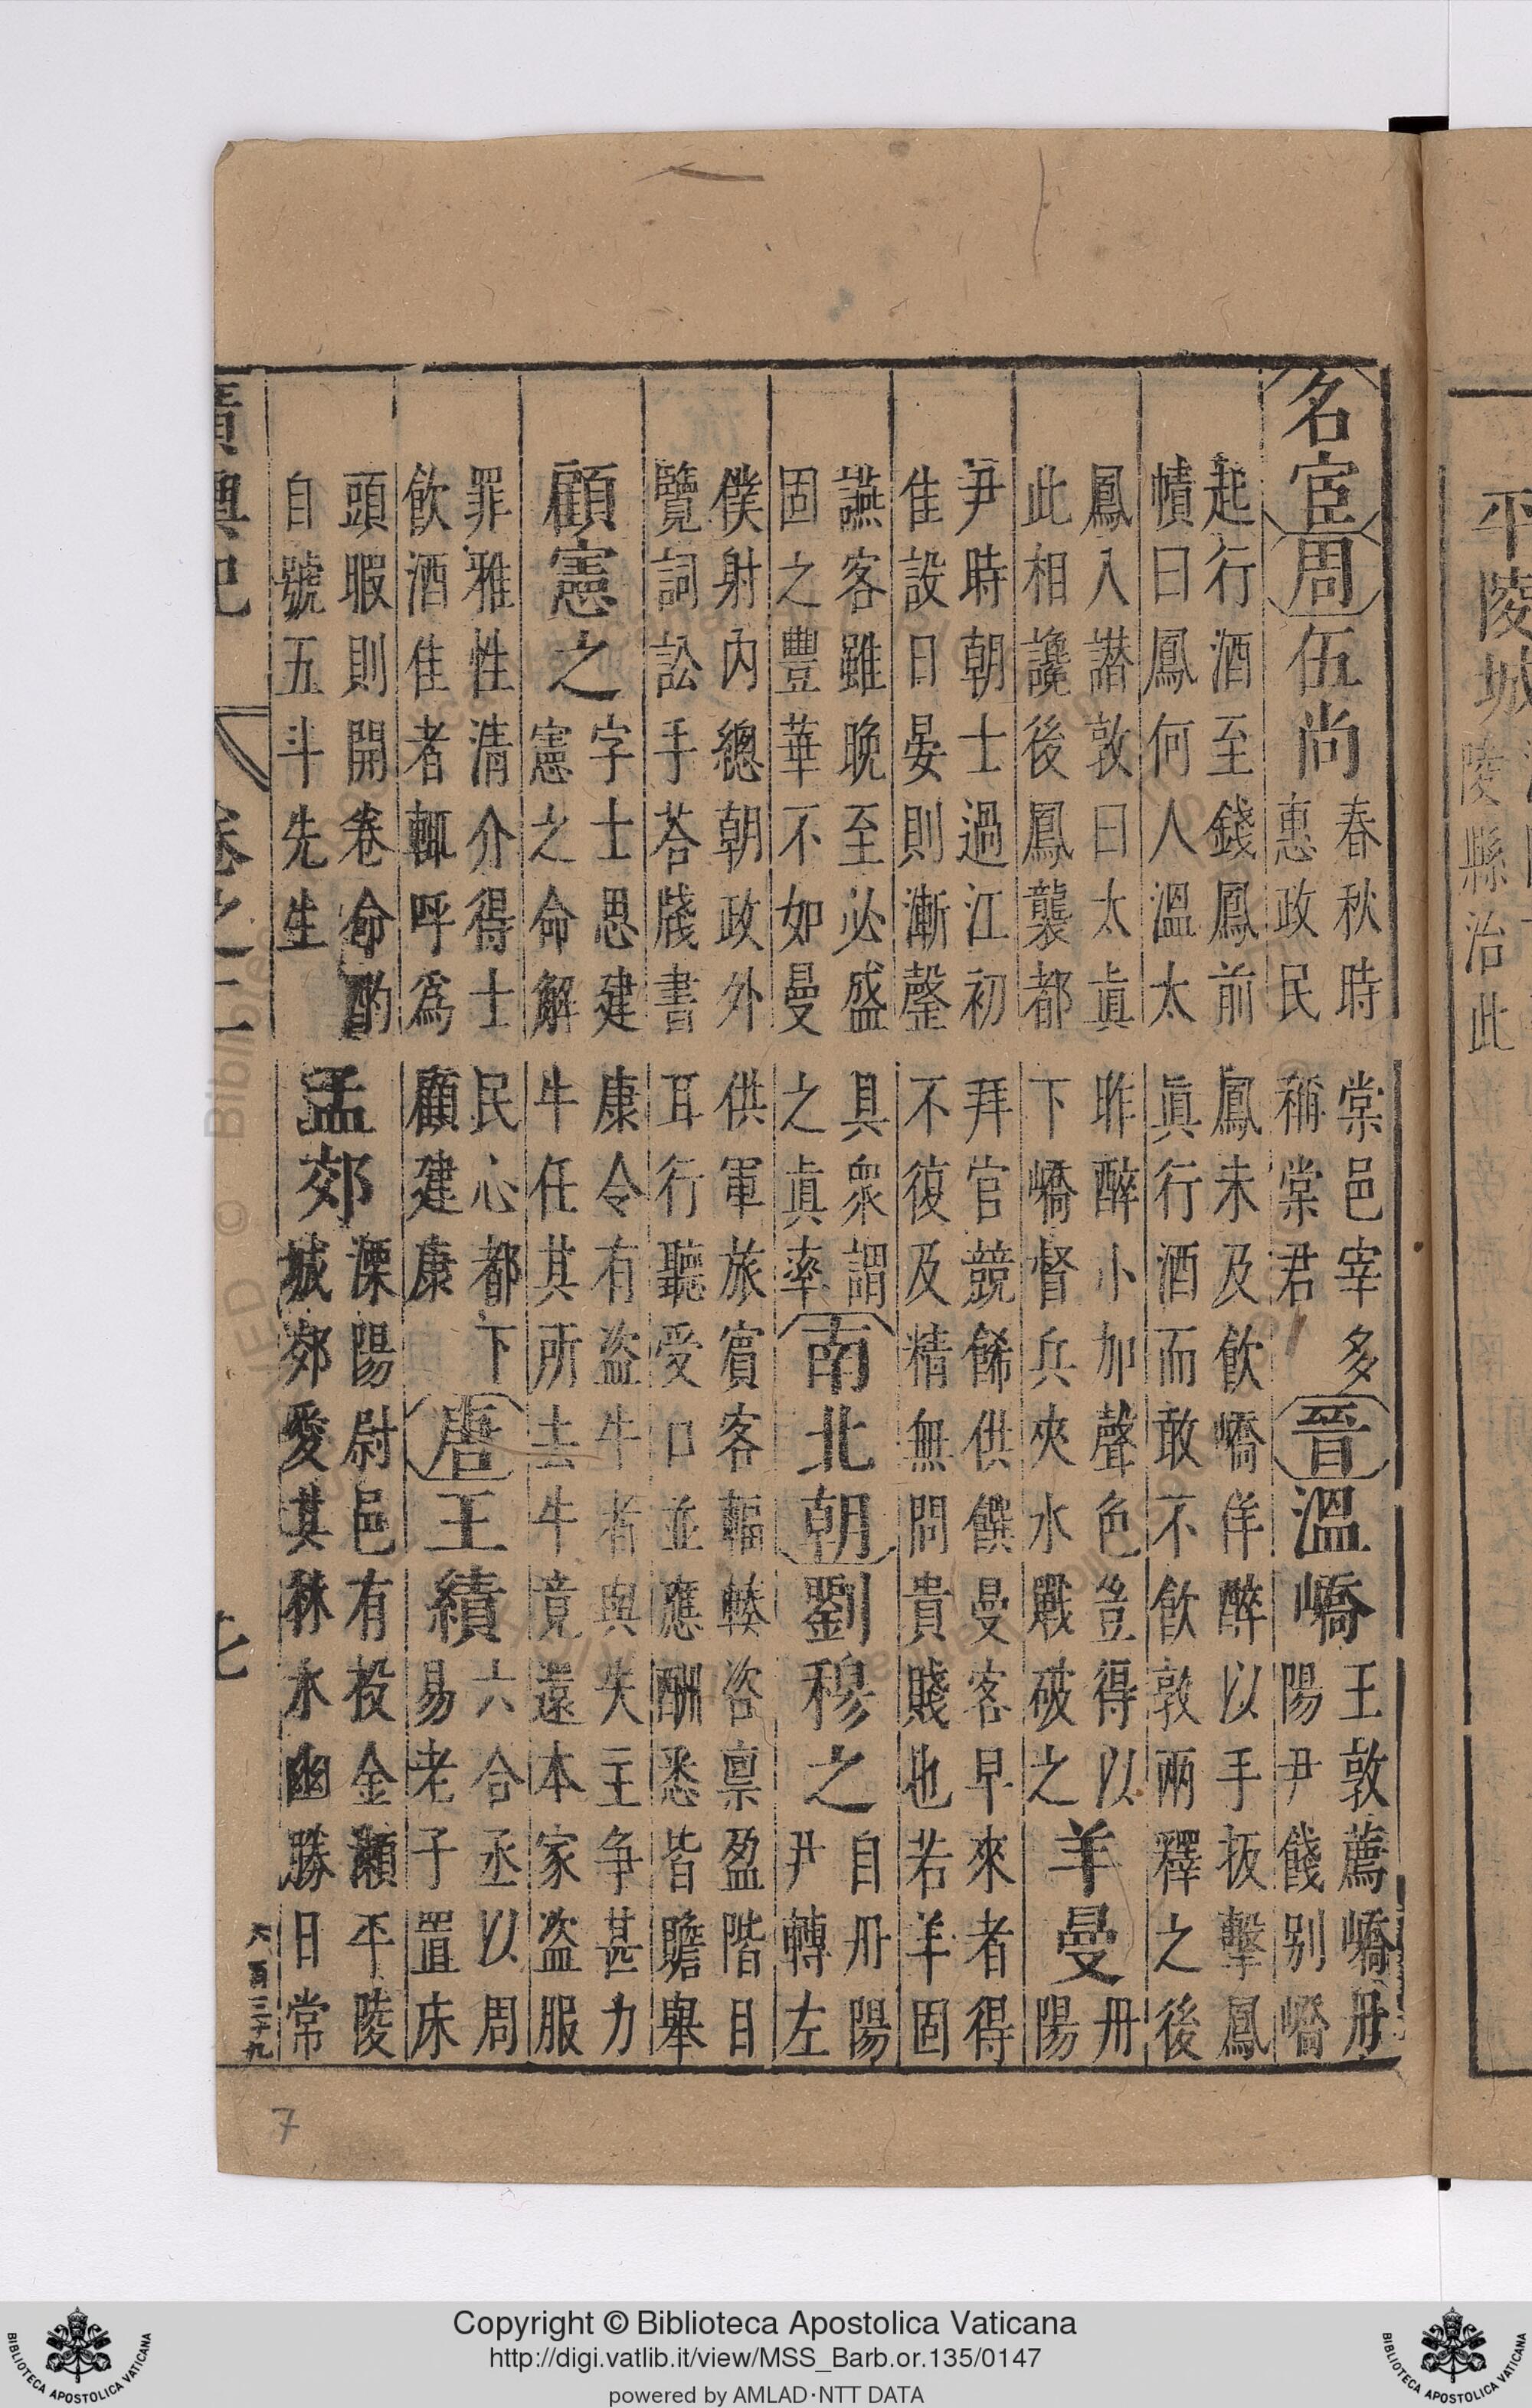 平陵城
陵縣治此
名宦 周 伍尚 春秋時棠邑宰多
惠政民稱棠君 晉 溫嶠 王敦薦嶠丹
陽尹餞别嶠
起行酒至錢鳳前鳳未及飲嶠佯醉以手扳擊鳳
幘曰鳳何人溫太眞行酒而敢不飲敦兩釋之後
鳳入譖敦曰太眞昨醉小加聲色豈得以
此相讒後鳳襲都下嶠督兵夾水戰破之 羊曼 丹
陽
尹時朝士過江初拜官競餙供饌曼客早來者得
隹設日晏則漸罄不復及精無問貴賤也若羊固
讌客雖晚至必盛具衆謂
固之豐華不如曼之眞率 南北朝 劉穆之 自丹陽
尹轉左
僕射内總朝政外供軍旅賓客輻輳咨禀盈階目
覽詞訟手荅牋書耳行聽受口並應酬悉皆贍舉
顧憲之 字士思建康令有盗牛者與失主争甚力
憲之命解牛任其所去牛竟還本家盗服
罪雅性清介得士民心都下
飲酒隹者輒呼爲顧建康 唐 王績 六合丞以周
易老子置床
頭暇則開卷命酌
自號五斗先生 孟郊 溧陽尉邑有投金瀨平陵
城郊愛其林水幽勝日常
六百三十九
廣輿記 卷之二 七
7
Copyright © Biblioteca Apostolica Vaticana
http://digi.vatlib.it/view/MSS_Barb.or.135/0147
powered by AMLAD·NTT DATA
BIBLIOTECA APOSTOLICA VATICANA
BIBLIOTECA APOSTOLICA VATICANA